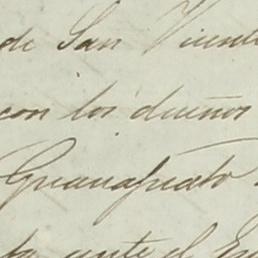 de San Vicente
con los dueños
Guanajuato
ante el